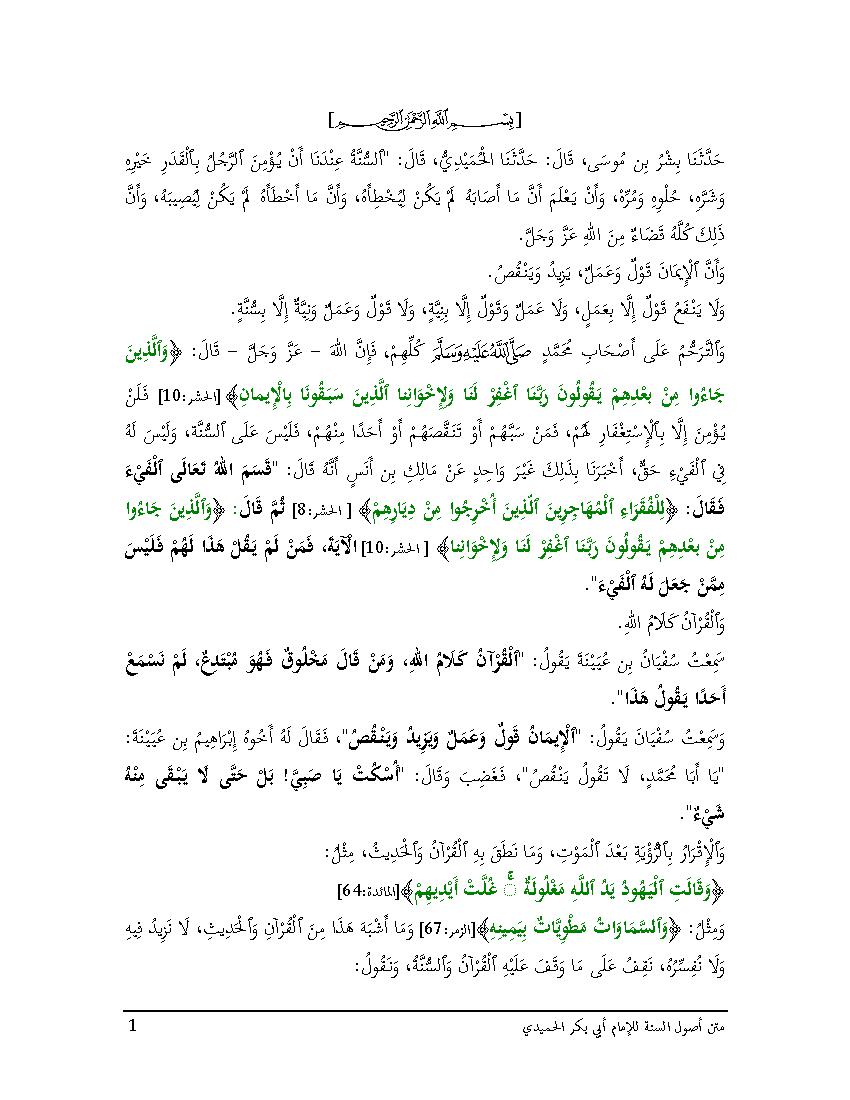 [بِسْمِ اللَّهِ الرَّحْمَنِ الرَّحِيمِ]
حَدَّثَنَا بِشْرُ بِن مُوسَى، قَالَ: حَدَّثَنَا الْحُمَيْدِيُّ، قَالَ: "ٱلسُّنَّةُ عِنْدَنَا أَنْ يُؤْمِنَ ٱلرَّجُلُ بِٱلْقَدَرِ خَيْرِهِ
وَشَرِّهِ، حُلْوِهِ وَمُرِّهْ، وَأَنْ يَعْلَمَ أَنَّ مَا أَصَابَهُ لَمْ يَكُنْ لِيُخْطِأَهُ، وَأَنَّ مَا أَخْطَأَهُ لَمْ يَكُنْ لِيُصِيبَهُ، وَأَنَّ
ذَلِكَ كُلَّهُ قَضَاءٌ مِنَ اللهِ عَزَّ وَجَلَّ.
وَأَنَّ ٱلْإِيمَانَ قَوْلٌ وَعَمَلٌ، يَزِيدُ وَيَنْقُصُ.
وَلَا يَنْفَعُ قَوْلٌ إِلَّا بِعَمَلٍ، وَلَا عَمَلٌ وَقَوْلٌ إِلَّا بِنِيَّةٍ، وَلَا قَوْلٌ وَعَمَلٌ وَنِيَّةٌ إِلَّا بِسُنَّةٍ.
وَٱلتَّرَحُّمُ عَلَى أَصْحَابِ مُحَمَّدٍ صَلَّى اللَّهُ عَلَيْهِ وَسَلَّمَ كُلِّهِمْ، فَإِنَّ اللهَ – عَزَّ وَجَلَّ – قَالَ: ﴿وَٱلَّذِينَ
جَاءُوا مِنْ بعْدِهِمْ يَقُولُونَ رَبَّنَا ٱغْفِرْ لَنَا وَلِإخْوَانِنا ٱلَّذِينَ سَبَقُونَا بِالْإِيمانِ﴾ [الحشر:10] فَلَنْ
يُؤْمِنَ إِلَّا بِٱلْإِسْتِغْفَارِ لَهُمْ، فَمَنْ سَبَّهُمْ أَوْ تَنَقَّصَهُمْ أَوْ أَحَدًا مِنْهُمْ، فَلَيْسَ عَلَى ٱلسُّنَّة، وَلَيْسَ لَهُ
فِي ٱلْفَيْءِ حَقٌّ، أَخْبَرَنَا بِذَلِكَ غَيْرَ وَاحِدٍ عَنْ مَالِكِ بِن أَنَسٍ أَنَّهُ قَالَ: "قَسَمَ اللهُ تَعَالَى ٱلْفَيْءَ
فَقَالَ: ﴿لِلْفُقَرَاءِ ٱلْمُهَاجِرِينَ ٱلَّذِينَ أُخْرِجُوا مِنْ دِيَارِهِمْ﴾ [ الحشر:8] ثُمَّ قَالَ: ﴿وَٱلَّذِينَ جَاءُوا
مِنْ بعْدِهِمْ يَقُولُونَ رَبَّنَا ٱغْفِرْ لَنَا وَلِإخْوَانِنا﴾ [ الحشر:10] ٱلْآيَةَ، فَمَنْ لَمْ يَقُلْ هَذَا لَهُمْ فَلَيْسَ
مِمَّنْ جَعَلَ لَهُ ٱلْفَيْءَ".
وَٱلْقُرْآنُ كَلَامُ اللهِ.
سَمِعْتُ سُفْيَانَ بِن عُيَيْنَةَ يَقُولُ: "ٱلْقُرْآنُ كَلَامُ اللهِ، وَمَنْ قَالَ مَخْلُوقٌ فَهُوَ مُبْتَدِعٌ، لَمْ نَسْمَعْ
أَحَدًا يَقُولُ هَذَا".
وَسَمِعْتُ سُفْيَانَ يَقُولُ: "ٱلْإِيمَانُ قَولٌ وَعَمَلٌ وَيَزِيدُ وَيَنْقُصُ"، فَقَالَ لَهُ أَخُوهُ إِبْرَاهِيمُ بِن عُيَيْنَةَ:
"يَا أَبَا مُحَمَّدٍ، لَا تَقُولُ يَنْقُصُ"، فَغَضِبَ وَقَالَ: "أُسْكُتْ يَا صَبِيَّ! بَلْ حَتَّى لَا يَبْقَى مِنْهُ
شَيْءٌ".
وَٱلْإِقْرَارُ بِٱلرُّؤْيَةِ بَعْدَ ٱلْمَوْتِ، وَمَا نَطَقَ بِهِ ٱلْقُرْآنُ وَٱلْحَدِيثُ، مِثْلُ:
﴿وَقَالَتِ ٱلْيَهُودُ يَدُ ٱللَّهِ مَغْلُولَةٌ ۚ غُلَّتْ أَيْدِيهِمْ﴾[المائدة:64]
وَمِثْلُ: ﴿وَٱلسَّمَاوَاتُ مَطْوِيَّاتٌ بِيَمِينِهِ﴾[الزمر:67] وَمَا أَشْبَهَ هَذَا مِنَ ٱلْقُرْآنِ وَٱلْحَدِيثِ، لَا نَزِيدُ فِيهِ
وَلَا نُفَسِّرُهُ، نَقِفُ عَلَى مَا وَقَفَ عَلَيْهِ ٱلْقُرْآنُ وَٱلسُّنَّةُ، وَنَقُولُ:
متن أصول السنة للإمام أبي بكر الحميدي 1